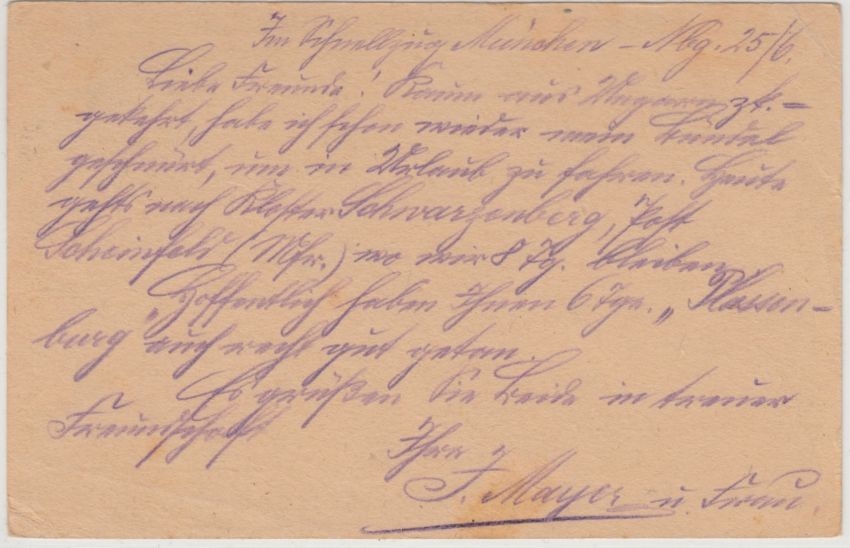 Im Schnellzug München – Nbg. 25/6.
Liebe Freunde! Kaum aus Ungarn zk.=
gekehrt, habe ich schon wieder mein Bündel
geschnürt, um in Urlaub zu fahren. Heute
gehts nach Kloster Schwarzenberg, Post
Scheinfeld (Mfr.) wo wir 8 Tg. bleiben.
Hoffentlich haben Ihnen 6 Tge. „Plassen-
burg" auch recht gut getan.
Es grüßen Sie Beide in treuer
Freundschaft
Ihre
J. Mayer u. Frau.